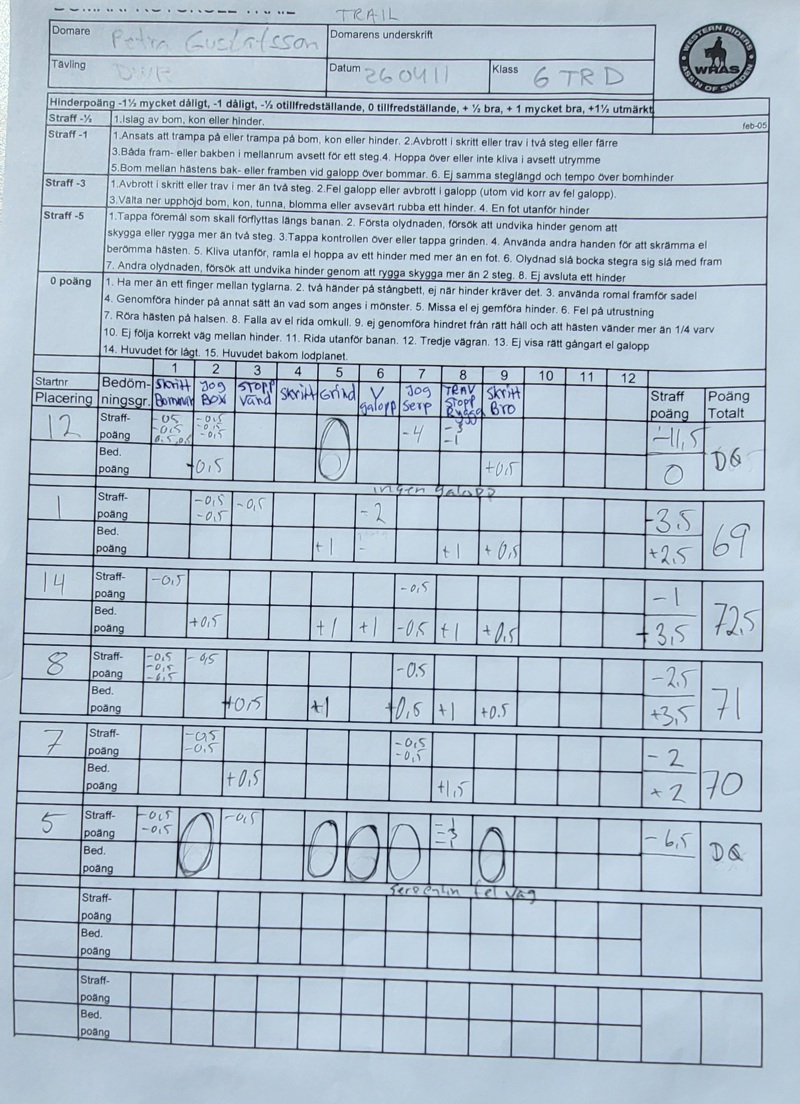 TRAIL
Domare
Petra Gustafsson
Domarens underskrift
Tävling
DWR
Datum 260411
Klass 6 TRD
WESTERN RIDERS
WRAS
ASS'N OF SWEDEN
Hinderpoäng -1½ mycket dåligt, -1 dåligt, -½ otillfredställande, 0 tillfredställande, + ½ bra, + 1 mycket bra, +1½ utmärkt
feb-05
Straff -½ 1.Islag av bom, kon eller hinder.
Straff -1 1.Ansats att trampa på eller trampa på bom, kon eller hinder. 2.Avbrott i skritt eller trav i två steg eller färre
3.Båda fram- eller bakben i mellanrum avsett för ett steg.4. Hoppa över eller inte kliva i avsett utrymme
5.Bom mellan hästens bak- eller framben vid galopp över bommar. 6. Ej samma steglängd och tempo över bomhinder
Straff -3 1.Avbrott i skritt eller trav i mer än två steg. 2.Fel galopp eller avbrott i galopp (utom vid korr av fel galopp).
3.Välta ner upphöjd bom, kon, tunna, blomma eller avsevärt rubba ett hinder. 4. En fot utanför hinder
Straff -5 1.Tappa föremål som skall förflyttas längs banan. 2. Första olydnaden, försök att undvika hinder genom att
skygga eller rygga mer än två steg. 3.Tappa kontrollen över eller tappa grinden. 4. Använda andra handen för att skrämma el
berömma hästen. 5. Kliva utanför, ramla el hoppa av ett hinder med mer än en fot. 6. Olydnad slå bocka stegra sig slå med fram
7. Andra olydnaden, försök att undvika hinder genom att rygga skygga mer än 2 steg. 8. Ej avsluta ett hinder
0 poäng 1. Ha mer än ett finger mellan tyglarna. 2. två händer på stångbett, ej när hinder kräver det. 3. använda romal framför sadel
4. Genomföra hinder på annat sätt än vad som anges i mönster. 5. Missa el ej gemföra hinder. 6. Fel på utrustning
7. Röra hästen på halsen. 8. Falla av el rida omkull. 9. ej genomföra hindret från rätt håll och att hästen vänder mer än 1/4 varv
10. Ej följa korrekt väg mellan hinder. 11. Rida utanför banan. 12. Tredje vägran. 13. Ej visa rätt gångart el galopp
14. Huvudet för lågt. 15. Huvudet bakom lodplanet.
1 2 3 4 5 6 7 8 9 10 11 12
Startnr
Placering
Bedöm-
ningsgr.
Skritt
Bommar
Jog
Box
Stopp
Vänd
Skritt
Grind
V
galopp
Jog
Serp
TRAV
Stopp
Rygga
Skritt
BRO
Straff
poäng
Poäng
Totalt
12 Straff-
poäng
-0,5
-0,5
0,5 0,5
-0,5
-0,5
-0,5
-4
-3
-1
-11,5
Bed.
poäng
-0,5 0 +0,5 0 DQ
ingen galopp
1 Straff-
poäng
-0,5
-0,5
-0,5 -2 -3,5
Bed.
poäng
+1 - +1 +0,5 +2,5 69
14 Straff-
poäng
-0,5 -0,5 -1
Bed.
poäng
+0,5 +1 +1 -0,5 +1 +0,5 +3,5 72,5
8 Straff-
poäng
-0,5
-0,5
-0,5
-0,5 -0.5 -2,5
Bed.
poäng
+0,5 +1 +0,5 +1 +0.5 +3,5 71
7 Straff-
poäng
-0,5
-0,5
-0,5
-0,5
-2
Bed.
poäng
+0,5 +1,5 +2 70
5 Straff-
poäng
-0,5
-0,5
-0,5 -6,5
Bed.
poäng
0 0 0 0 0 DQ
Serpentin fel väg
Straff-
poäng
Bed.
poäng
Straff-
poäng
Bed.
poäng